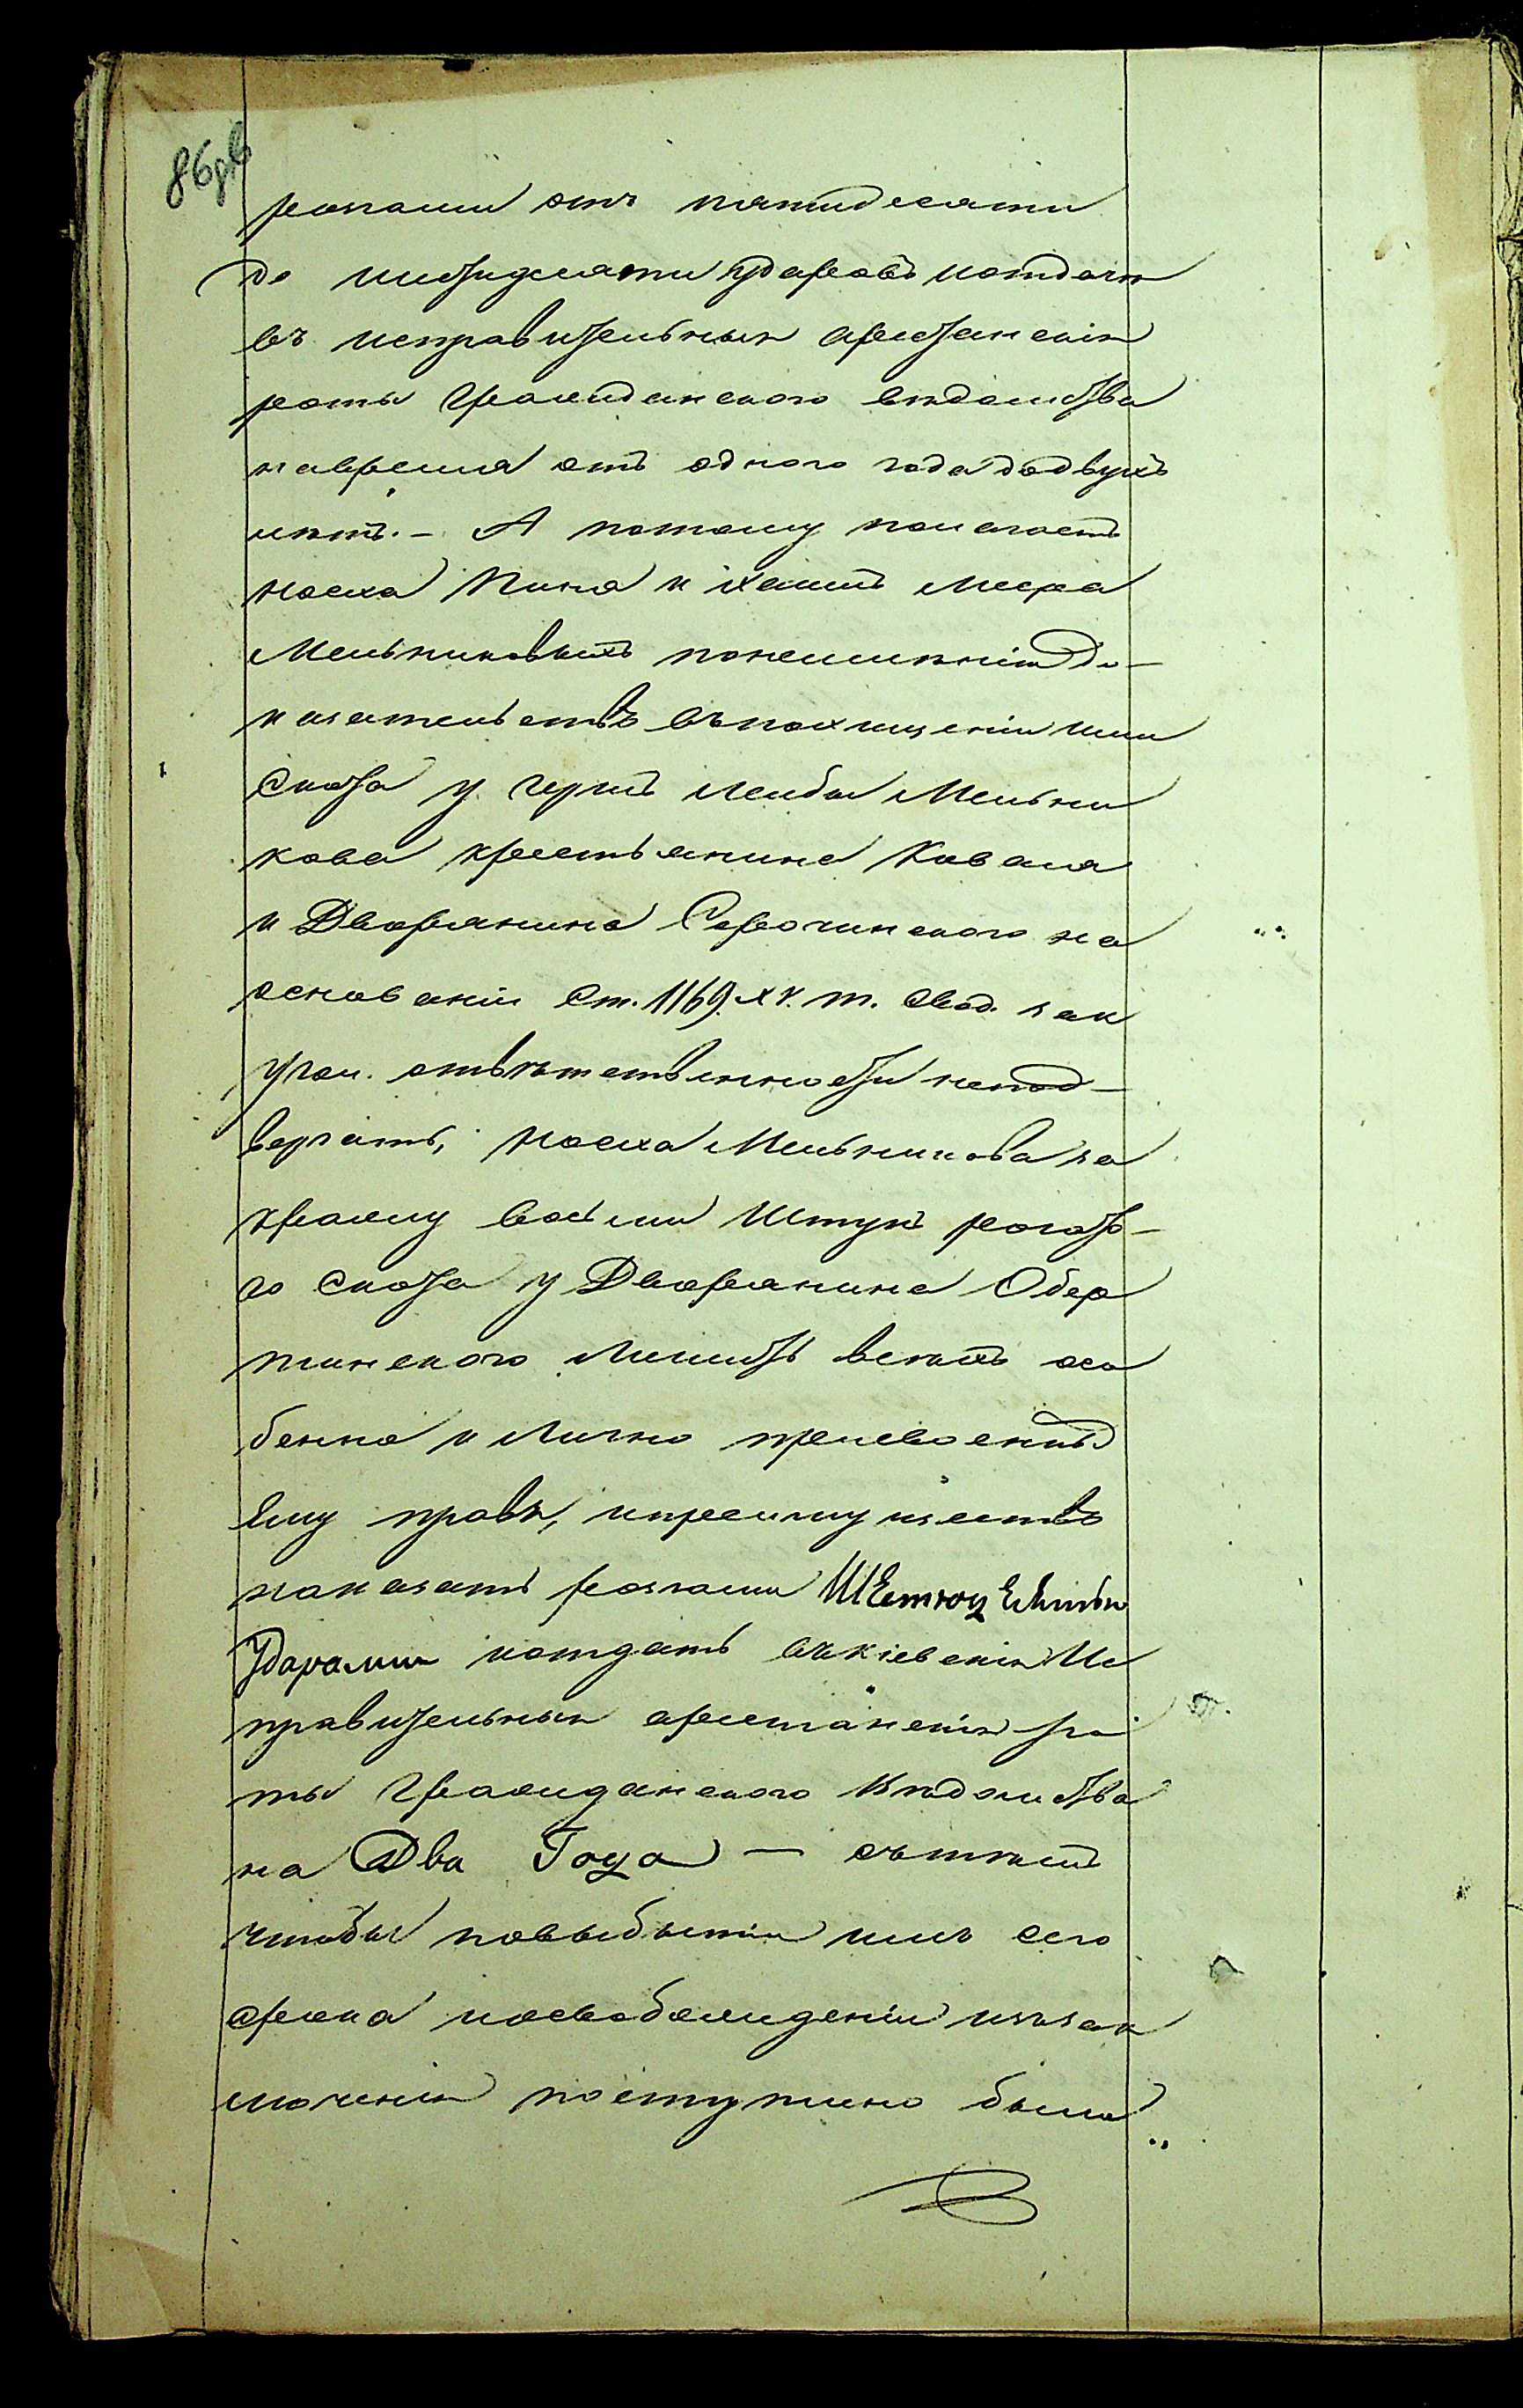 86 об
розгами отъ пятидесяти
до шестидесяти ударовъ и отдачѣ
въ исправительныя арестанскія
роты гражданскаго вѣдомства
на время отъ одного года до двухъ
лѣтъ. – А потому полагаетъ
Иосиа Пиня и Хаимъ Меера
Мельниковыхъ по неимѣнію до-
казательствъ въ похищеніи ими
скота у Лейбы Мельни
кова крестьянина Коваля
и Дворянина Сорочинскаго на
основаніи ст. 1169. XV. т. Свод. зак
угол. отвѣтственности непод-
вергать, Иосиа Мельникова за
кражу восьми штукъ рогато-
го скота у Дворянина Обер
тинскаго лишить всѣхъ осо
бенно и лично присвоенныхъ
ему правъ, и преимуществъ
наказать розгами Шестюдесятью
Ударами и отдать въ кіевскія Ис
правительныя арестанскія ро
ты гражданскаго вѣдомства
на Два Года – съ тѣмъ
чтобы по выбытіи имъ сего
срока и освобожденіи изъ зак
люченія поступлено было